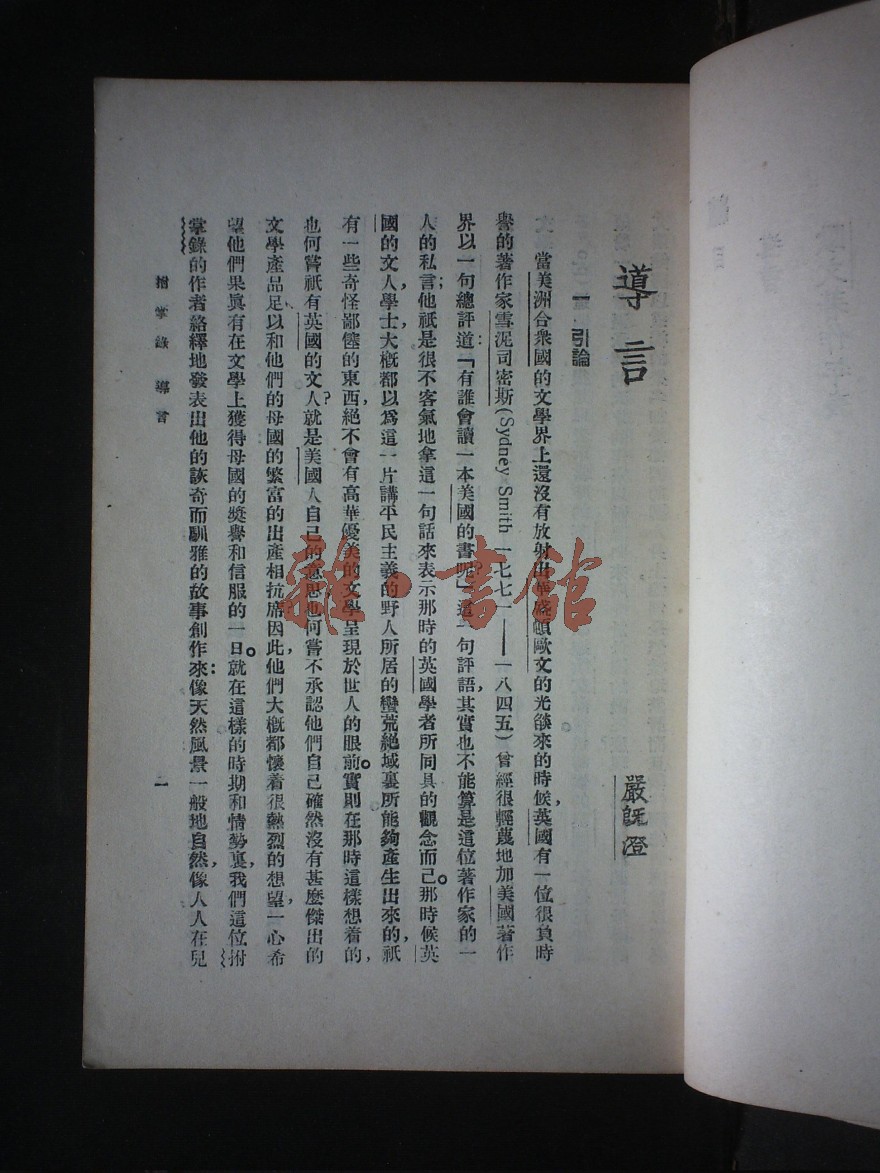 導言
嚴旣澄
一 引論
當美洲合衆國的文學界上還沒有放射出華盛頓歐文的光燄來的時候，英國有一位很負時
譽的著作家雪泥司密斯(Sydney Smith 一七七一——一八四五)曾經很輕蔑地加美國著作
界以一句總評道：「有誰會讀一本美國的書呢？」這一句評語，其實也不能算是這位著作家的一
人的私言；他祇是很不客氣地拿這一句話來表示那時的英國學者所同具的觀念而已。那時候英
國的文人，學士大槪都以爲這一片講平民主義的野人所居的蠻荒絕域裏所能夠產生出來的，祇
有一些奇怪鄙僿的東西，絕不會有高華優美的文學呈現於世人的眼前。實則在那時這樣想着的，
也何嘗祇有英國的文人？就是美國人自己的意思也何嘗不承認他們自己確然沒有甚麼傑出的
文學產品足以和他們的母國的繁富的出產相抗席，因此，他們大槪都懷着很熱烈的想望，一心希
望他們果眞有在文學上獲得母國的獎譽和信服的一日。就在這樣的時期和情勢裏，我們這位拊
掌錄的作者絡繹地發表出他的詼奇而馴雅的故事創作來：像天然風景一般地自然，像人人在兒
拊掌錄 導言
一
雜·書館